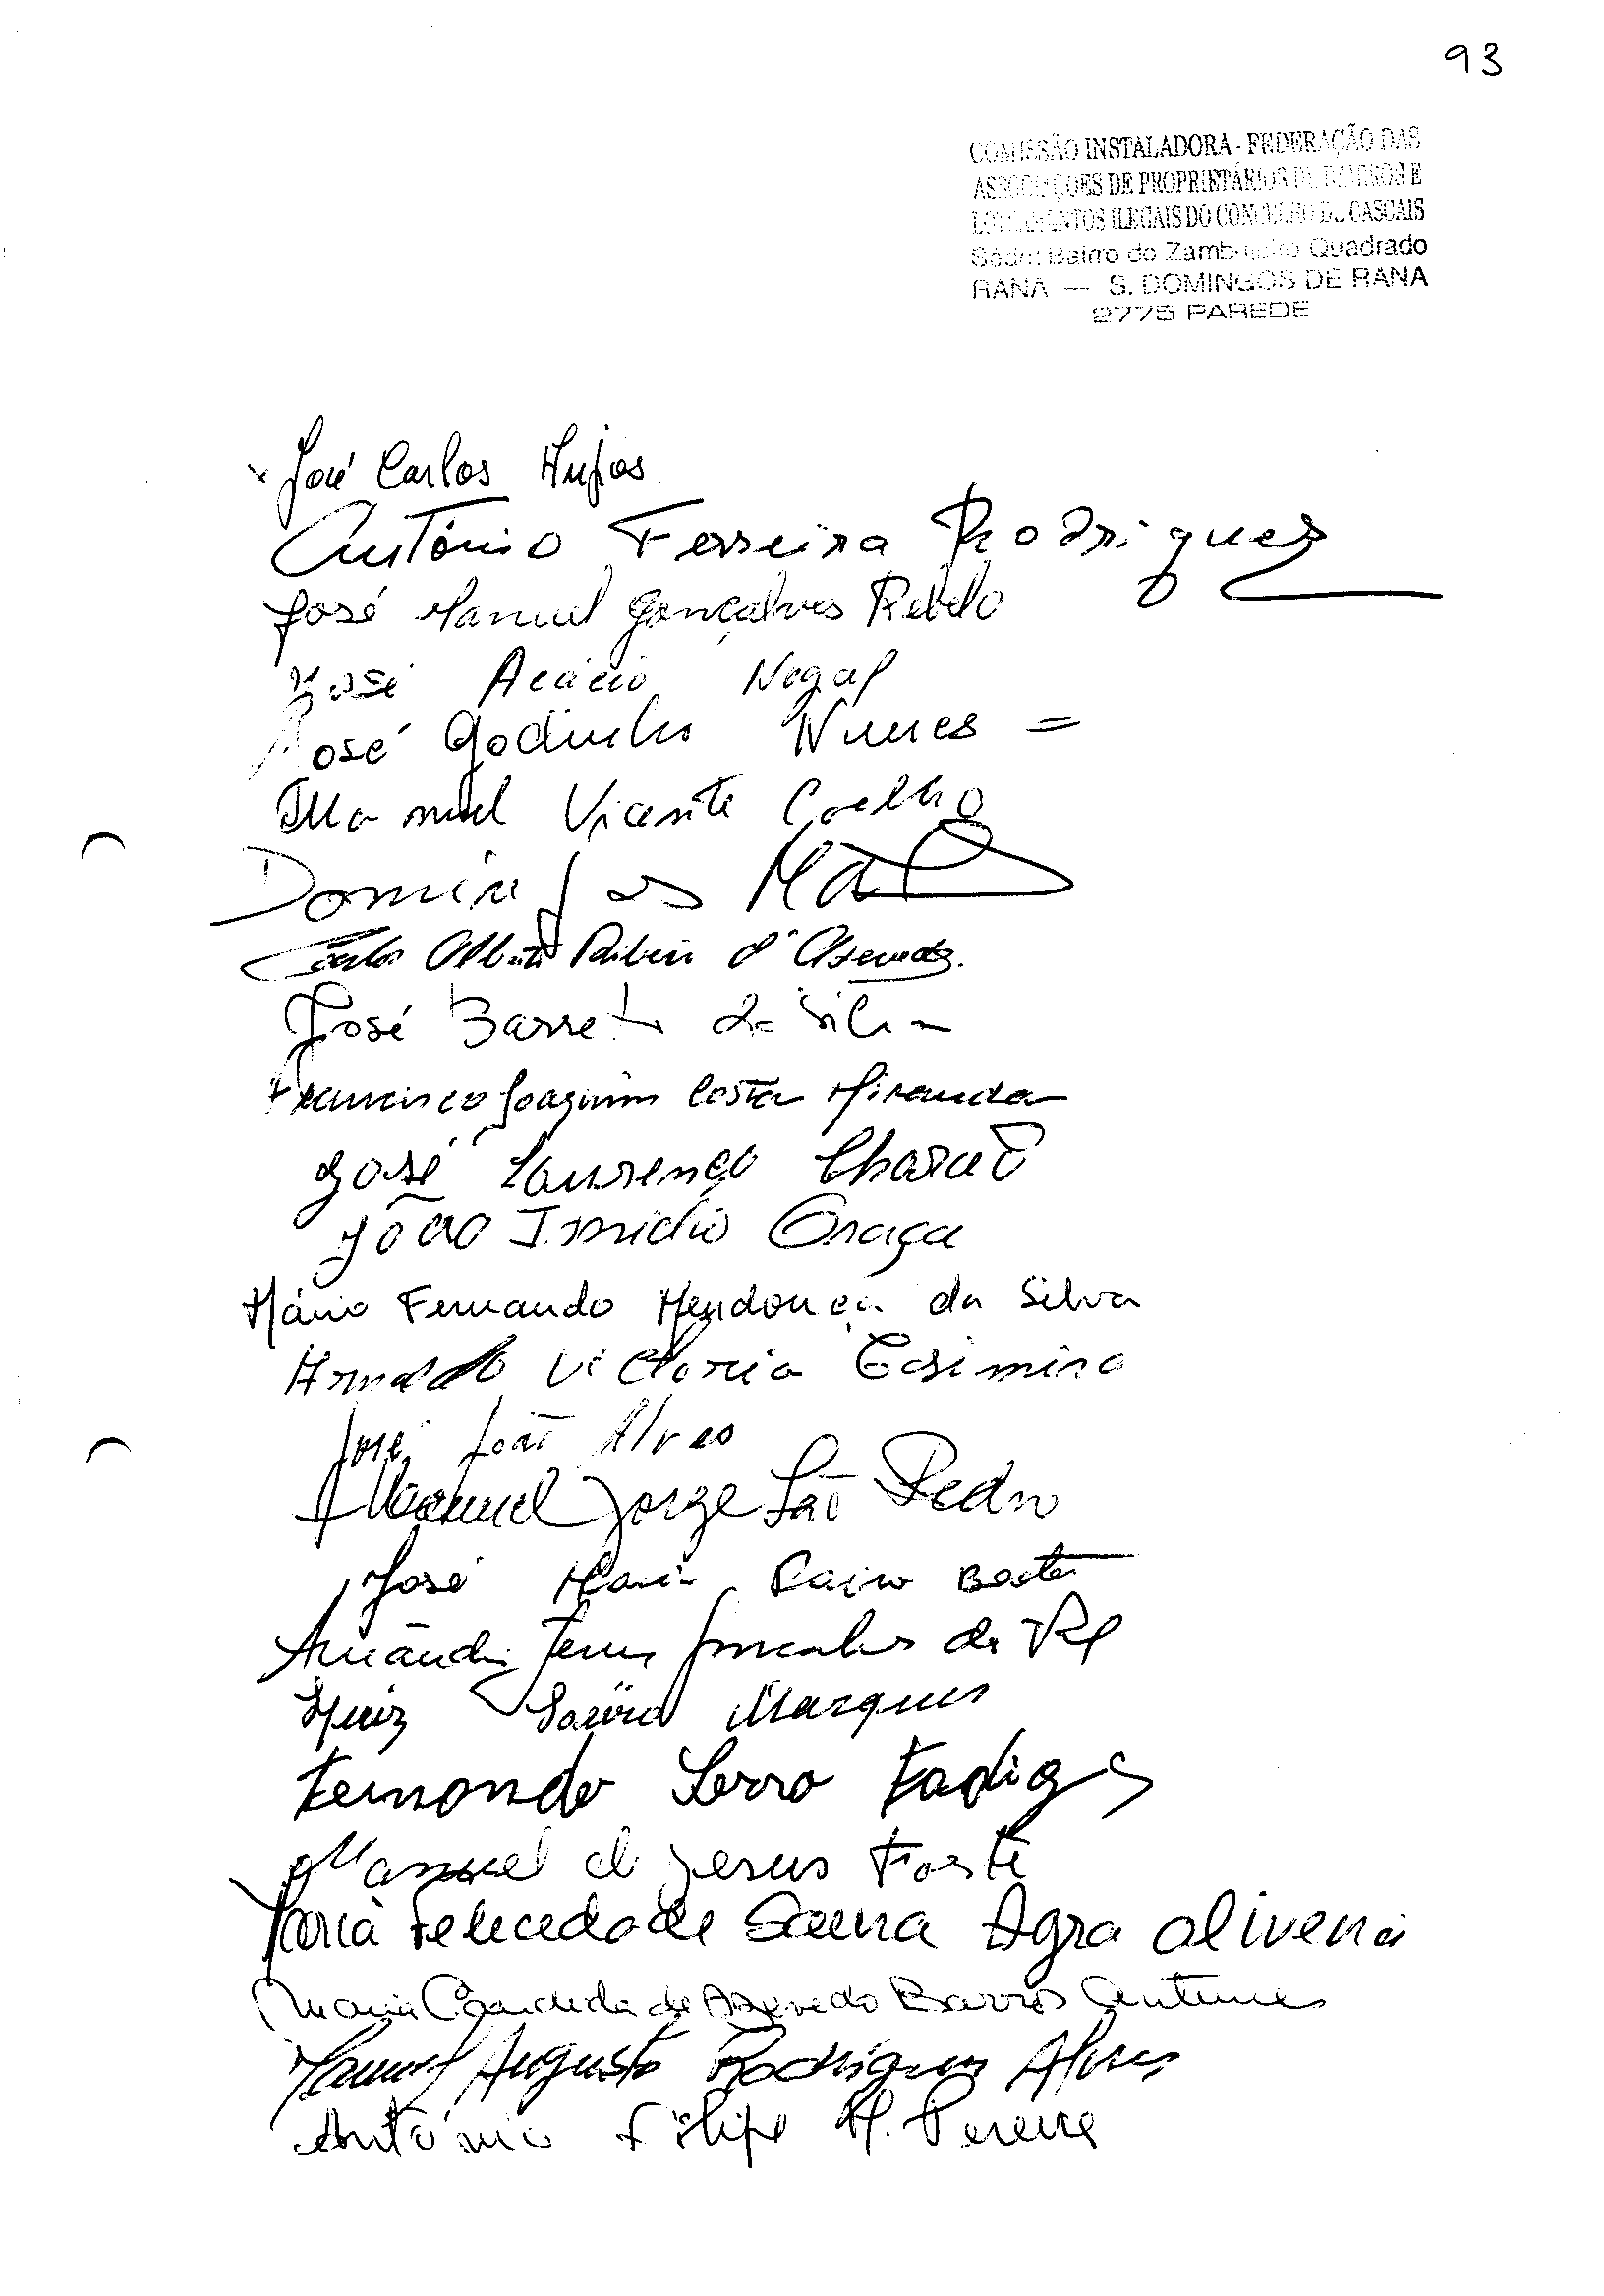 93
COMISSÃO INSTALADORA - FEDERAÇÃO DAS
ASSOCIAÇÕES DE PROPRIETÁRIOS DE BAIRROS E
LOTEAMENTOS ILEGAIS DO CONCELHO DE CASCAIS
Séde: Bairro do Zambujeiro Quadrado
RANA — S. DOMINGOS DE RANA
2775 PAREDE
José Carlos
António Ferreira Rodrigues
José Manuel Gonçalves Rebelo
José Acácio Nogal
José Godinho Nunes =
Manuel Vicente Coelho
Domingos
Carlos Alberto Ribeiro d'Azevedo.
José Barreto da Silva
Francisco Joaquim Costa Miranda
José Lourenço
João Graça
Mário Fernando Mendonça da Silva
Arnaldo Victoria Casimiro
José João Alves
Manuel Jorge São Pedro
José Maria
Gonçalves
Luiz Marques
Fernando Serro Fadigas
Manuel de Jesus Forte
Maria Felecedade Agra
Maria Candida de Azevedo Barros Antunes
Manuel Augusto Rodrigues Alves
António Filipe M. Pereira